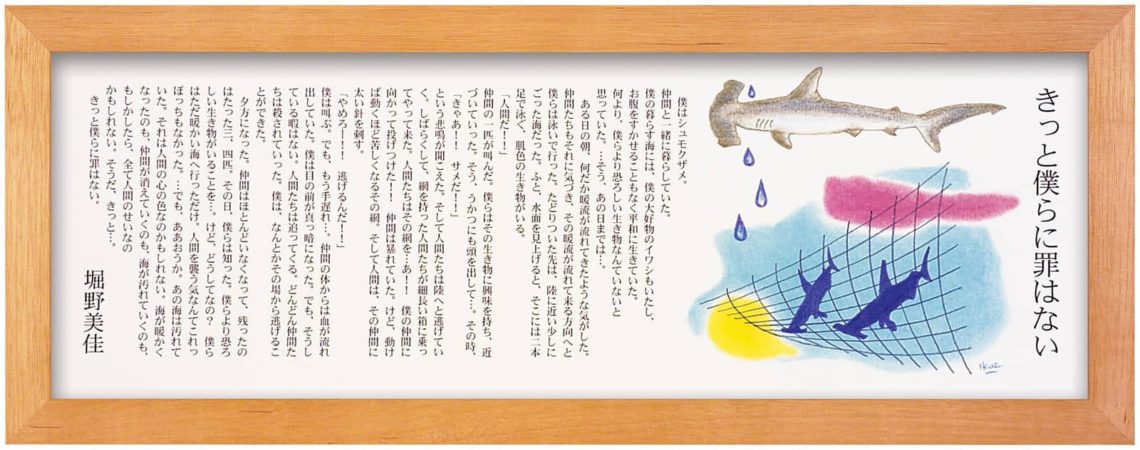 きっと僕らに罪はない
僕はシュモクザメ。
仲間と一緒に暮らしていた。
僕の暮らす海には、僕の大好物のイワシもいたし、
お腹をすかせることもなく平和に生きていた。
何より、僕らより恐ろしい生き物なんていないと
思っていた。…そう、あの日までは…。
ある日の朝、何だか暖流が流れてきたような気がした。
仲間たちもそれに気づき、その暖流が流れて来る方向へと
僕らは泳いで行った。たどりついた先は、陸に近い少しに
ごった海だった。ふと、水面を見上げると、そこには二本
足で泳ぐ、肌色の生き物がいる。
「人間だ!!」
仲間の一匹が叫んだ。僕らはその生き物に興味を持ち、近
づいていった。そう、うかつにも頭を出して…。その時、
「きゃあ!! サメだ!!」
という悲鳴が聞こえた。そして人間たちは陸へと逃げてい
く。しばらくして、網を持った人間たちが細長い箱に乗っ
てやって来た。人間たちはその網を…あ!! 僕の仲間に
向かって投げつけた!! 仲間は暴れていた。けど、動け
ば動くほど苦しくなるその網。そして人間は、その仲間に
太い針を刺す。
「やめろー!! 逃げるんだ!!」
僕は叫ぶ。でも、もう手遅れ…。仲間の体からは血が流れ
出していた。僕は目の前が真っ暗になった。でも、そうし
ている暇はない。人間たちは追ってくる。どんどん仲間た
ちは殺されていった。僕は、なんとかその場から逃げるこ
とができた。
夕方になった。仲間はほとんどいなくなって、残ったの
はたった三、四匹。その日、僕らは知った。僕らより恐ろ
しい生き物がいることを…。けど、どうしてなの? 僕ら
はただ暖かい海へ行っただけ。人間を襲う気なんてこれっ
ぽっちもなかった。…でも、ああおうか。あの海は汚れて
いた。それは人間の心の色なのかもしれない。海が暖かく
なったのも、仲間が消えていくのも、海が汚れていくのも、
もしかしたら、全て人間のせいなの
かもしれない。そうだ、きっと…。
きっと僕らに罪はない。
堀野美佳